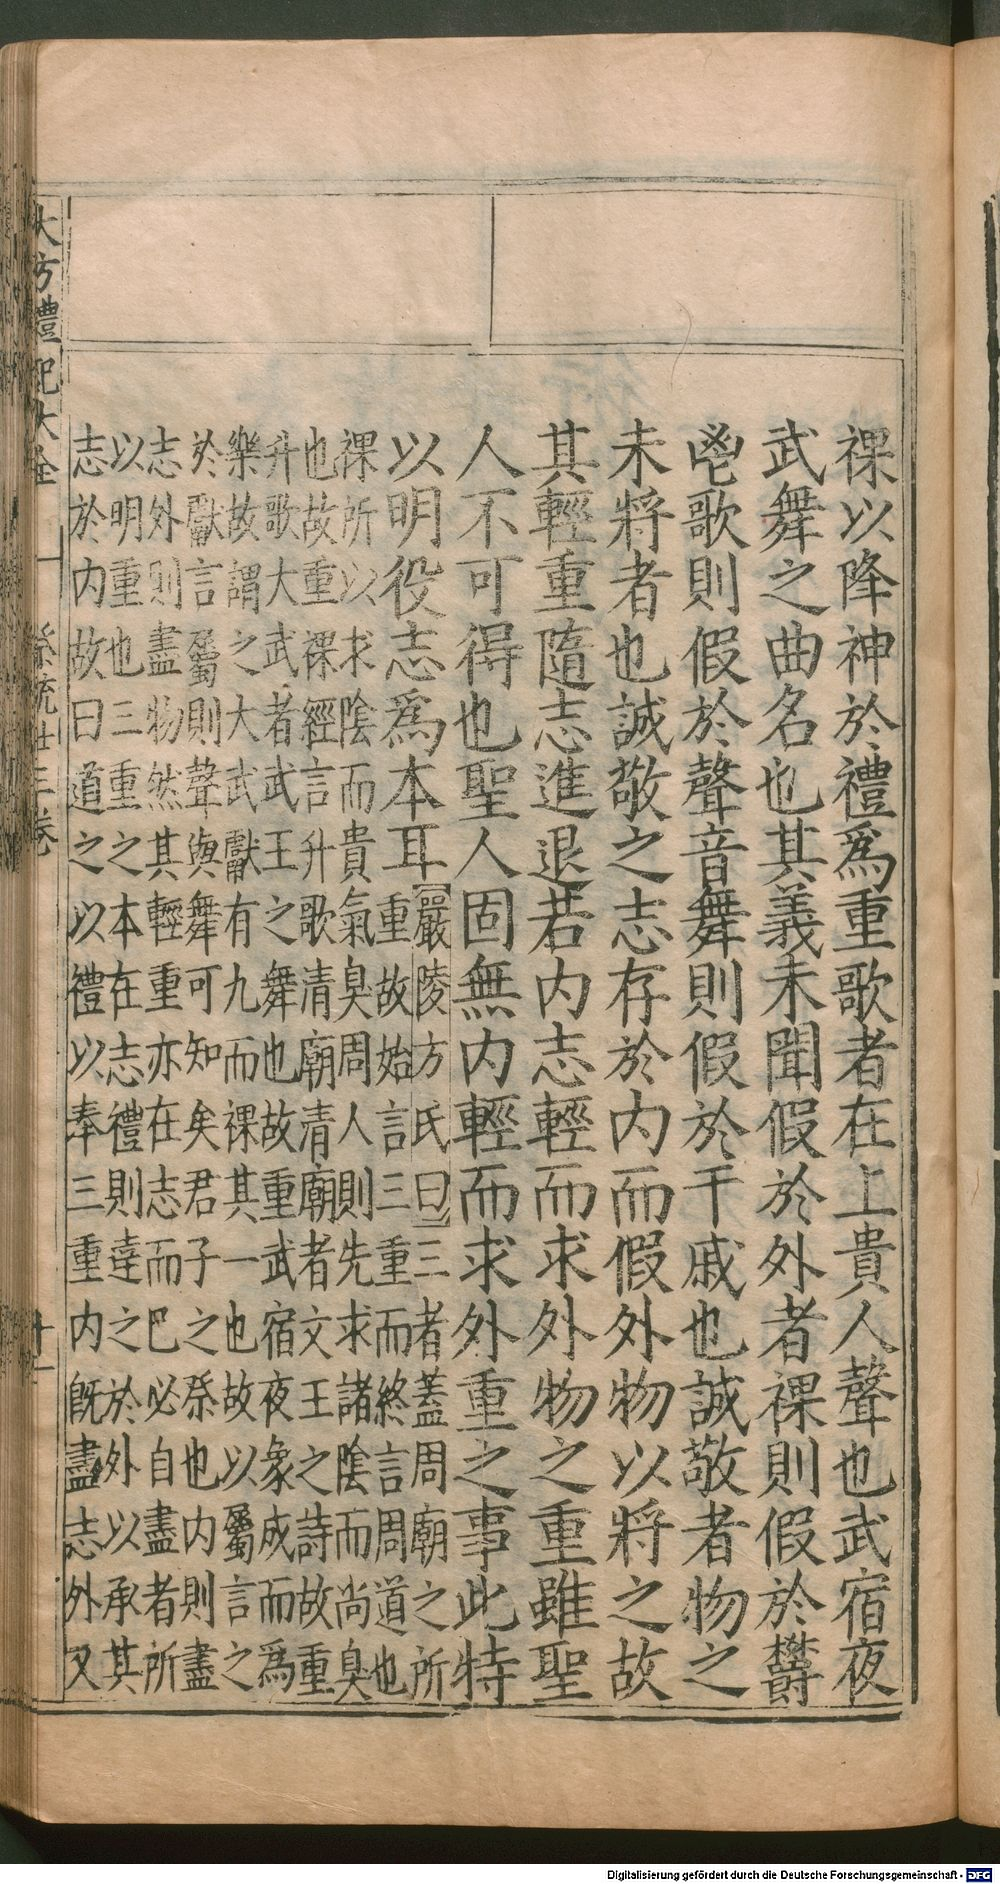 祼以降神於禮爲重歌者在上貴人聲也武宿夜
武舞之曲名也其義未聞假於外者祼則假於鬱
鬯歌則假於聲音舞則假於干戚也誠敬者物之
未將者也誠敬之志存於内而假外物以將之故
其輕重隨志進退若内志輕而求外物之重雖聖
人不可得也聖人固無内輕而求外重之事此特
以明役志爲本耳
嚴陵方氏曰三者蓋周廟之所
重故始言三重而終言周道也
祼所以求陰而貴氣臭周人則先求諸陰而尚臭
也故重祼經言升歌清廟清廟者文王之詩故重
升歌大武者武王之舞也故重武宿夜象成而爲
樂故謂之大武獻有九而祼其一也故以屬言之
於獻言屬則聲與舞可知矣君子之祭也内則盡
志外則盡物然其輕重亦在志而巳必自盡者所
以明重也三重之本在志禮則達之於外以承其
志於内故曰道之以禮以奉三重内既盡志外又
大方禮記大全 祭統廿三卷 十一
Digitalisierung gefördert durch die Deutsche Forschungsgemeinschaft - DFG